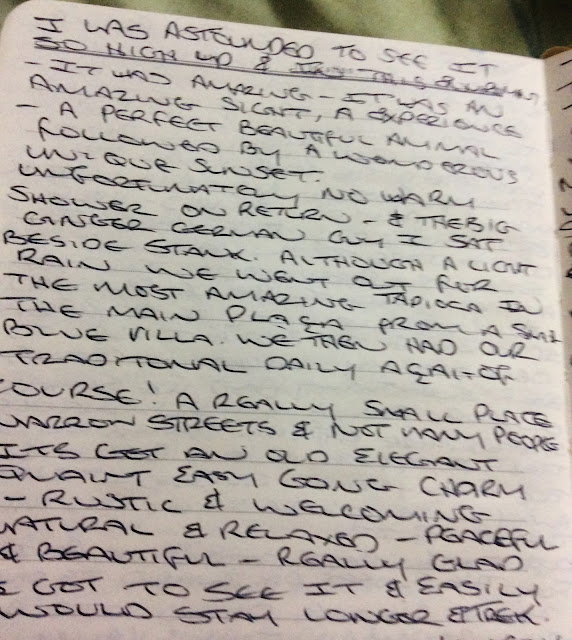 I WAS ASTOUNDED TO SEE IT
SO HIGH UP &
- IT WAS AMAZING - IT WAS AN
AMAZING SIGHT, A EXPERIENCE
- A PERFECT BEAUTIFUL ANIMAL
FOLLOWED BY A WONDEROUS
UNIQUE SUNSET.
UNFORTUNATELY NO WARM
SHOWER ON RETURN - & THE BIG
GINGER GERMAN GUY I SAT
BESIDE STANK. ALTHOUGH A LIGHT
RAIN WE WENT OUT FOR
THE MOST AMAZING TAPIOCA IN
THE MAIN PLAZA FROM A
BLUE VILLA. WE THEN HAD OUR
TRADITONAL DAILY AÇAI - OF
COURSE! A REALLY SMALL PLACE
NARROW STREETS & NOT MANY PEOPLE
ITS GOT AN OLD ELEGANT
QUAINT EASY GOING CHARM
- RUSTIC & WELCOMING
NATURAL & RELAXED - PEACEFUL
& BEAUTIFUL - REALLY GLAD
I GOT TO SEE IT & EASILY
WOULD STAY LONGER & TREK.